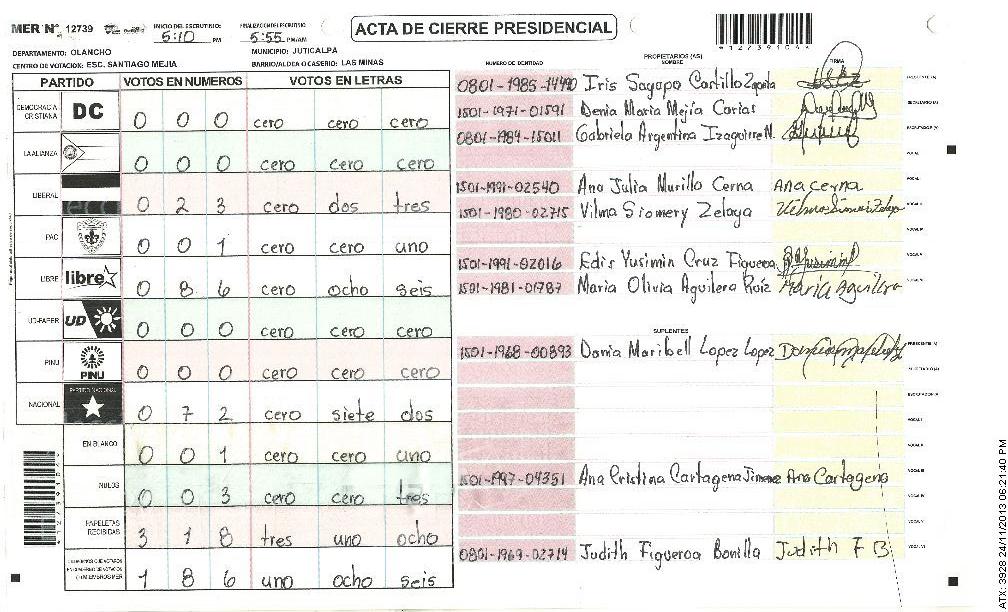 MER Nº 12739
INICIO DEL ESCRUTINIO: 5:10 PM
FINALIZACION DEL ESCRUTINIO 5:55 PM/AM
ACTA DE CIERRE PRESIDENCIAL
DEPARTAMENTO: OLANCHO
MUNICIPIO: JUTICALPA
CENTRO DE VOTACION: ESC. SANTIAGO MEJIA
BARRIO/ALDEA O CASERIO: LAS MINAS
PARTIDO VOTOS EN NUMEROS VOTOS EN LETRAS
DEMOCRACIA CRISTIANA DC 0 0 0 cero cero cero
LA ALIANZA 0 0 0 cero cero cero
LIBERAL 0 2 3 cero dos tres
PAC 0 0 1 cero cero uno
LIBRE libre 0 8 6 cero ocho seis
UD-FAPER UD 0 0 0 cero cero cero
PINU PINU 0 0 0 cero cero cero
NACIONAL PARTIDO NACIONAL 0 7 2 cero siete dos
EN BLANCO 0 0 1 cero cero uno
NULOS 0 0 3 cero cero tres
PAPELETAS RECIBIDAS 3 1 8 tres uno ocho
1 8 6 uno ocho seis
NUMERO DE IDENTIDAD
PROPIETARIOS (AS)
NOMBRE
FIRMA
0801-1985-14490 Iris Sagapo Castillo Zapata
1501-1971-01591 Denia Maria Mejía Carias
0801-1984-15011 Gabriela Argentina Izaguirre N.
1501-1991-02540 Ana Julia Murillo Cerna Ana cerna
1501-1980-02715 Vilma Siomery Zelaya
1501-1991-02016 Edis Yusimin Cruz Figueroa
1501-1981-01787 Maria Olivia Aguilera Ruiz María Aguilera
SUPLENTES
1501-1968-00893 Dania Maribell Lopez Lopez
1501-1997-04351 Ana Cristina Cartagena Jimenez Ana Cartagena
0801-1969-02714 Judith Figueroa Bonilla Judith F B
ATX: 3928 24/11/2013 06:21:40 PM